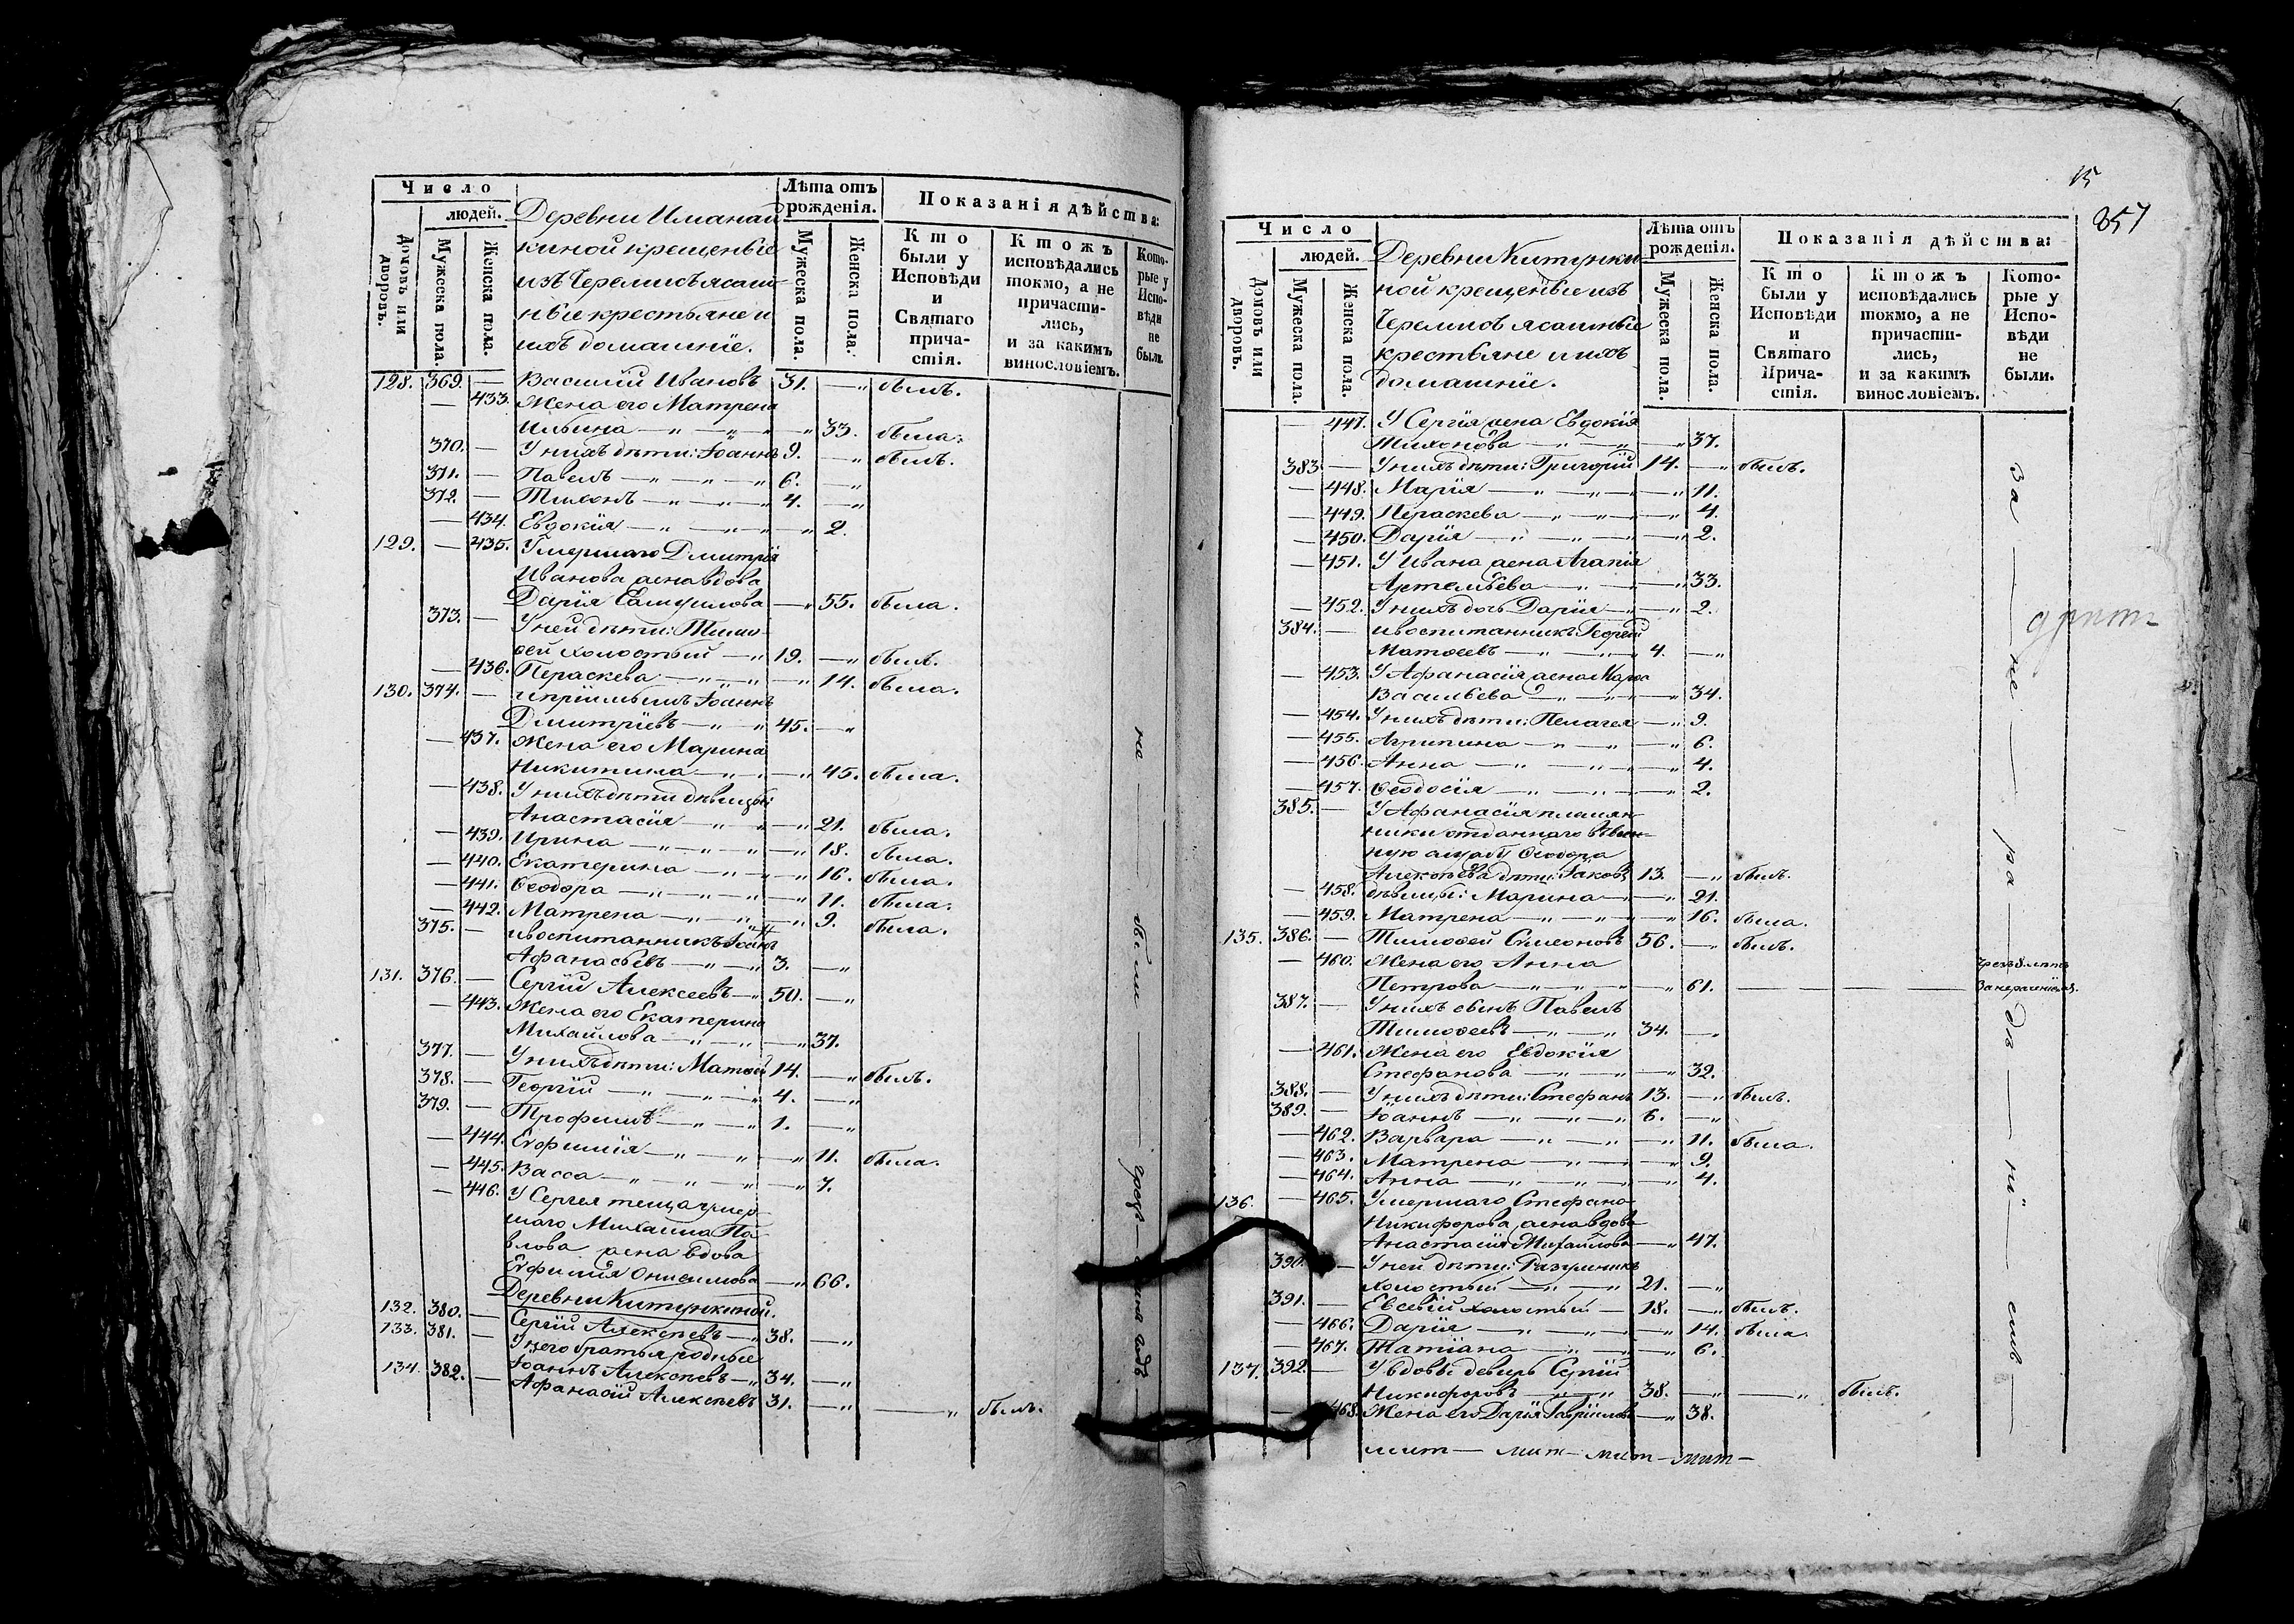 Число
людей.
Домовъ или дворовъ.
Мужеска пола.
Женска пола.
Деревни Иманай
киной крещеные
изъ Черемисъ ясаш
ные крестьяне и
ихъ домашніе.
Лѣта отъ
рожденія.
Мужеска пола.
Женска пола.
Показанія дѣйства:
Кто
были у
Исповѣди
и
Святаго
прича-
стія.
Ктожъ
исповѣдались
токмо, а не
причасти-
лись,
и за какимъ
винословіемъ.
Кото-
рые у
Испо-
вѣди
не
были.
128. 369. — Василій Ивановъ 31. — " былъ.
— 433. Жена его Матрена
Ильина — " — " — " 33. была.
370. — У нихъ дѣти: Іоаннъ 9. — " былъ.
371. — Павелъ — " — " — " 6. — "
372. — Тихонъ — " — " — " 4. — "
— 434. Евдокія — " — " — " 2.
129. — 435. Умершаго Дмитрія
Иванова жена вдова
Дарія — " 55. была.
373. — У ней дѣти: Тимо-
ѳей холостый — " 19. — " былъ.
— 436. Параскева — " — " — " 14. была.
130. 374. — Іоаннъ
Дмитріевъ — " — " 45. — "
— 437. Жена его Марина
Никитина — " — " — " 45. была.
— 438. У нихъ дѣти дѣвицы:
Анастасія — " — " — " 21. была.
— 439. Ирина — " — " — " 18. была.
— 440. Екатерина — " — " — " 16. была.
— 441. Ѳеодора — " — " — " 11. была.
— 442. Матрена — " — " — " 9. была.
375. — и воспитанникъ Іоаннъ
Афанасьевъ — " — " 3. — "
131. 376. — Сергій Алексеевъ — " 50. — "
— 443. Жена его Екатерина
Михайлова — " — " — " 37.
377. — У нихъ дѣти: Матѳей 14. — " былъ.
378. — Георгій — " — " — " 4. — "
379. — Трофимъ — " — " 1. — "
— 444. Евфимія — " — " — " 11. была.
— 445. Васса — " — " — " 7.
— 446. У Сергея теща умер-
шаго Михаила Па-
влова жена вдова
Евфимія Онисимова — " 66.
Деревни Китункиной.
132. 380. — Сергій Алексѣевъ — " 38. — "
133. 381. — У него братья родные
Іоаннъ Алексѣевъ — " 34. — "
134. 382. — Афанасій Алексѣевъ 31. — " — " былъ.
не — были — — годъ —
15
357
Число
людей.
Домовъ или дворовъ.
Мужеска пола.
Женска пола.
Деревни Китунки-
ной крещеные изъ
Черемисъ ясашные
крестьяне и ихъ
домашніе.
Лѣта отъ
рожденія.
Мужеска пола.
Женска пола.
Показанія дѣйства:
Кто
были у
Исповѣди
и
Святаго
Прича-
стія.
Ктожъ
исповѣдались
токмо, а не
причасти-
лись,
и за какимъ
винословіемъ.
Кото-
рые у
Испо-
вѣди
не
были.
— 447. У Сергія жена Евдокія
Тихонова — " — " — " 37.
383. — У нихъ дѣти: Григорій 14. — " былъ.
— 448. Марія — " — " — " 11.
— 449. Параскева — " — " — " 4.
— 450. Дарія — " — " — " 2.
— 451. У Ивана жена Агапія
Артемьева — " — " 33.
— 452. У нихъ дочь Дарія — " — " 2.
384. — и воспитанникъ Георгій
Матѳеевъ — " — " 4. — "
— 453. У Афанасія жена Марѳа
Васильева — " — " — " 34.
— 454. У нихъ дѣти: Пелагея — " 9.
— 455. Агрипина — " — " — " 6.
— 456. Анна — " — " — " 4.
— 457. Ѳеодосія — " — " — " 2.
385. — У Афанасія племян-
ники отданнаго въ воен-
ную службу Ѳеодора
Алексѣева дѣти: Іаковъ 13. — " былъ.
— 458. дѣвицы: Марина — " 21.
— 459. Матрена — " — " — " 16. была.
135. 386. — Тимоѳей Симеоновъ 56. — " былъ.
— 460. Жена его Анна
Петрова — " — " — " 61.
387. — У нихъ сынъ Павелъ
Тимоѳеевъ — " — " 34. — "
— 461. Жена его Евдокія
Стефанова — " — " — " 32.
388. — У нихъ дѣти: Стефанъ 13. — " былъ.
389. — Іоаннъ — " — " — " 6. — "
— 462. Варвара — " — " — " 11. была.
— 463. Матрена — " — " — " 9.
— 464. Анна — " — " — " 4.
136. — 465. Умершаго Стефана
Никифорова жена вдова
Анастасія Михайлова — " 47.
390. — У ней дѣти: Разумникъ
холостый — " — " 21. — "
391. — Евсевій холостый — 18. — " былъ.
— 466. Дарія — " — " — " 14. была.
— 467. Татіана — " — " — " 6.
137. 392. — У вдовы деверь Сергій
Никифоровъ — " 38. — " — " былъ.
— 468. Жена его Дарія Гавріилова — " 38.
за — не — ра — дѣ — ні — емъ —